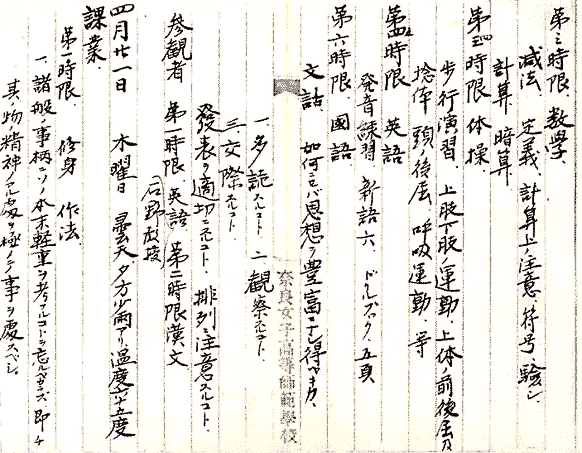 第三時限、数學、
減法 定義、計算上ノ注意、符号、験シ、
計算、暗算
第四時限 体操、
歩行演習、上肢下肢ノ運動、上体ノ前後屈及
捻俥頭後屈 呼吸運動、等
第五時限 英語
発音練習、新語六、ドルブック、五頁
第六時限、國語、
文話 如何ニセバ思想ヲ豊富ナシ得ベキカ、
一、多読スルコト 二、観察スルコト、
三、交際スルコト、
發表ヲ適切ニスルコト、排列ニ注意スルコト、
參觀者 第一時限、英語 第二時限漢文
石野教授
四月廿一日 木曜日 曇天夕方少雨アリ、温度六十五度
課業、
第一時限 修身 作法
一、諸般ノ事柄ニソノ本末軽重ヲ考フルコトヲ忘ルベカラズ 即チ
其ノ物ノ精神アル處ヲ極メテ事ヲ處スベシ、
奈良女子高等師範學校